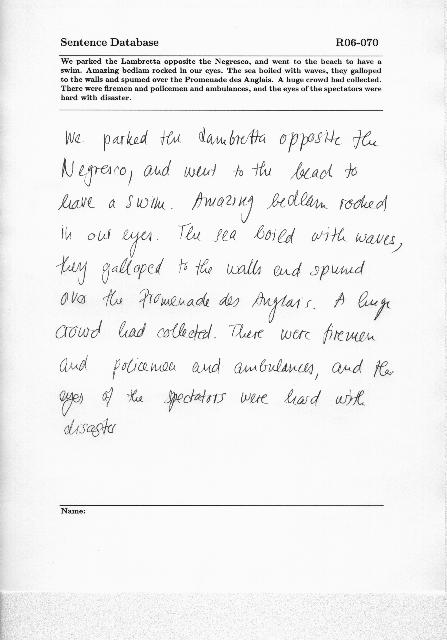 Sentence Database R06-070
We parked the Lambretta opposite the Negresco, and went to the beach to have a
swim. Amazing bedlam rocked in our eyes. The sea boiled with waves, they galloped
to the walls and spumed over the Promenade des Anglais. A huge crowd had collected.
There were firemen and policemen and ambulances, and the eyes of the spectators were
hard with disaster.
We parked the Lambretta opposite the
Negresco, and went to the beach to
have a swim. Amazing bedlam rocked
in our eyes. The sea boild with waves,
they galloped to the walls and spumed
over the Promenade des Anglais. A huge
crowd had collected. There were firemen
and policemen and ambulances, and the
eyes of the spectators were hard with
disaster
Name: